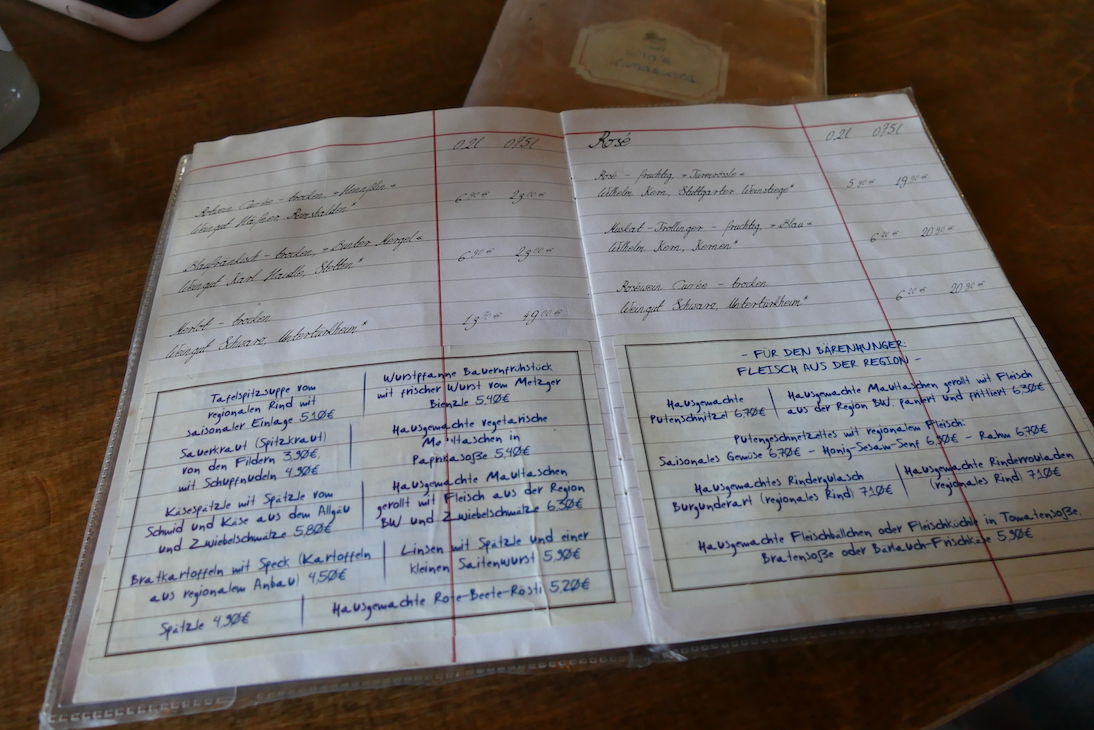 0,2l 0,75l
Rotwein Cuvée - trocken,
Weingut Häfner, Remshalden*
6,90€ 23,00€
Blaufränkisch - trocken, »Bunter Mergel«
Weingut Karl Haidle, Stetten*
6,90€ 23,00€
Merlot - trocken
Weingut Schwarz, Untertürkheim*
49,00€
Tafelspitzsuppe vom
regionalen Rind mit
saisonaler Einlage 5,10€
Wurstpfanne Bauernfrühstück
mit frischer Wurst vom Metzger
Bienzle 5,40€
Sauerkraut (Spitzkraut)
von den Fildern 3,90€,
mit Schupfnudeln 4,90€
Hausgemachte vegetarische
Maultaschen in
Paprikasoße 5,40€
Käsespätzle mit Spätzle vom
Schmid und Käse aus dem Allgäu
und Zwiebelschmälze 5,80€
Hausgemachte Maultaschen
gerollt mit Fleisch aus der Region
BW und Zwiebelschmälze 6,30€
Bratkartoffeln mit Speck (Kartoffeln
aus regionalem Anbau) 4,50€
Linsen mit Spätzle und einer
kleinen Saitenwurst 5,90€
Spätzle 4,90€
Hausgemachte Rote-Beete-Rösti 5,20€
Rosé
0,2l 0,75l
Rosé - fruchtig »Turmrösle«
Wilhelm Kern, Stuttgarter Weinsteige*
5,90€ 19,90€
Muskat-Trollinger - fruchtig, »Blau«
Wilhelm Kern, Kernen*
6,20€ 20,90€
Roséwein Cuvée - trocken
Weingut Schwarz, Untertürkheim*
6,20€ 20,90€
- FÜR DEN BÄRENHUNGER:
FLEISCH AUS DER REGION -
Hausgemachte
Putenschnitzel 6,70€
Hausgemachte Maultaschen gerollt mit Fleisch
aus der Region BW, paniert und frittiert 6,30€
Putengeschnetzeltes mit regionalem Fleisch:
Saisonales Gemüse 6,70€ - Honig-Sesam-Senf 6,90€ - Rahm 6,70€
Hausgemachtes Rindergulasch
Burgunderart (regionales Rind) 7,10€
Hausgemachte Rinderrouladen
(regionales Rind) 7,10€
Hausgemachte Fleischbällchen oder Fleischküchle in Tomatensoße,
Bratensoße oder Bärlauch-Frischkäse 5,90€